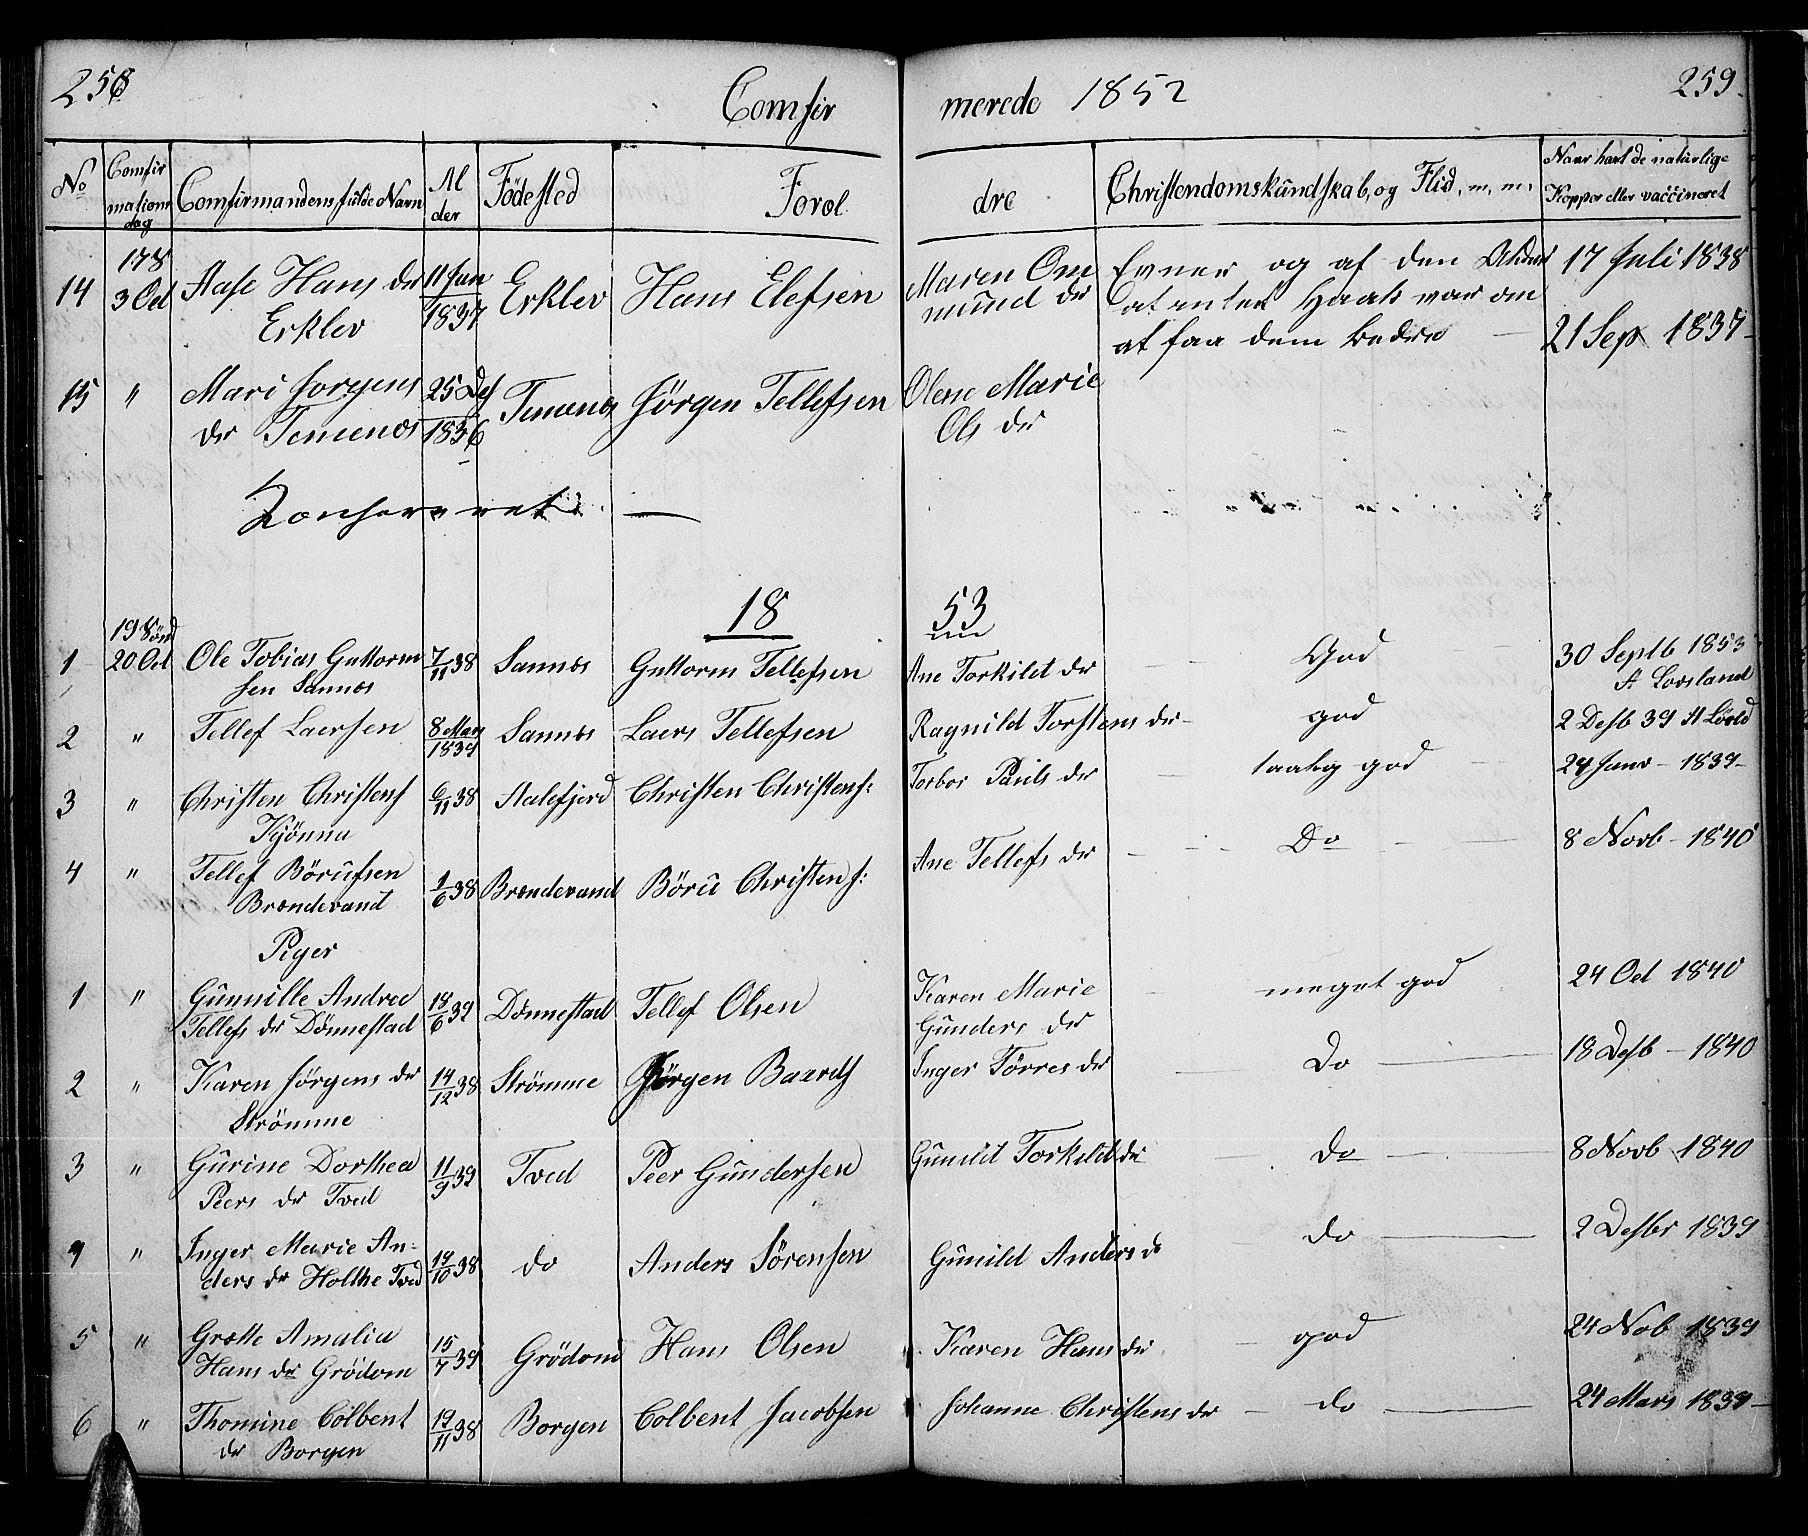 258
259
Comfir merede 1852
No
Comfir mations dag
Comfirmandens fulde Navn
Al der
Födested
Forol dre
Christendomskundskab, og Flid, m, m,
Naar havt de natürlige Kopper eller vaccineret
14 3 Oct Aase Hans dr Erklev 11 Jan 1837 Erklev Hans Elefsen Maren Om mund dr Evner og af den
at faa dem bedre 17 Juli 1838
21 Sep 1837
15 " Mari Jorgens dr Temenos 25 Des 1836 Temenos Jörgen Tellefsen Olene Marie Ols dr
1853
1 20 Oct Ole Tobias Guttorm sen Sannos 7/11 38 Sannos Guttorm Tellefsen Ane Torkild dr God 30 Septb 1853 A Lovsland
2 " Tellef Laersen 8 Mars 1839 Sannos Laers Tellefsen Ragnild Torstens dr god 2 Desb 39 A Lövld
3 " Christen Christens Kjönna 6/11 38 Aalefjord Christen Christens: Torbor Pauls dr taalig god 24 Janv - 1839
4 " Tellef Börufsen Brondevand 1/6 38 Brondevand Börü Christens: Ane Tellefs dr Do 8 Novb - 1840
Piger
1 " Günnille Andrea Tellefs dr Dönnestad 18/6 39 Dönnestad Tellef Olsen Karen Marie Gunders dr meget god 24 Oct 1840
2 " Karen Jörgens dr Strömme 14/12 38 Strömme Jörgen Baards Inger Törres dr Do 18 Desb - 1840
3 " Gurine Dorthea Peers dr Tved 11/9 39 Tved Peer Gündersen Gunild Torkilds dr do 8 Novb 1840
4 " Inger Marie An- ders dr Holthe Tved 14/10 38 do Anders Sörensen Günild Anders d do 2 Desbr 1839
5 " Grethe Amalia Hans dr Grödom 15/7 39 Grödom Hans Olsen Karen Hans dr god 24 Nob 1839
6 " Thomine Colbent dr Borgen 19/11 38 Borgen Colbent Jacobsen Johanne Christens dr do 24 Mars 1839